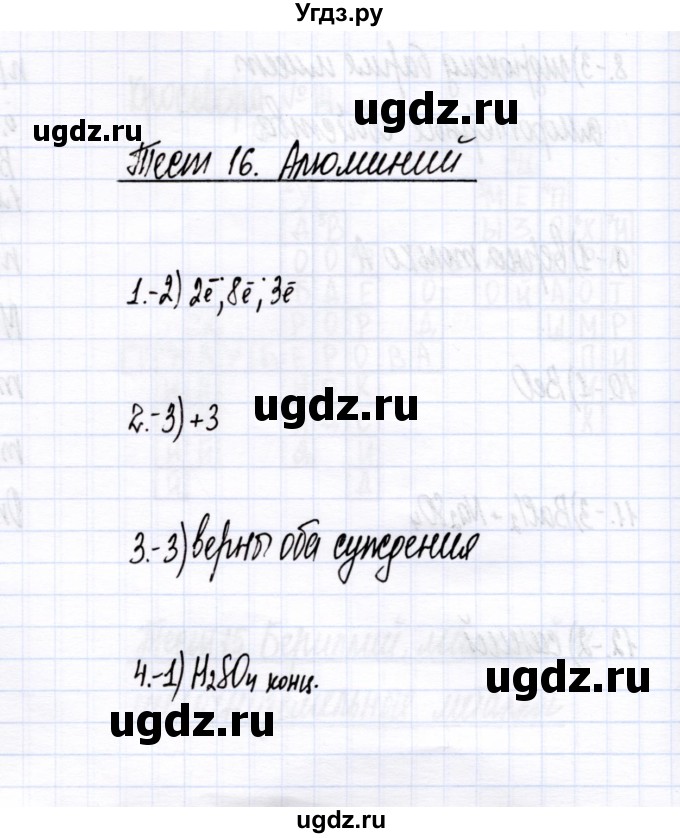 Угдз.ру
ugdz.ru
ugdz.ru
Тест 16. Алюминий
1.-2) 2ē; 8ē; 3ē
ugdz.ru
2.-3) +3
3.-3) верны оба суждения
ugdz.ru
4.-1) H₂SO₄ конц.
ugdz.ru
ugdz.ru